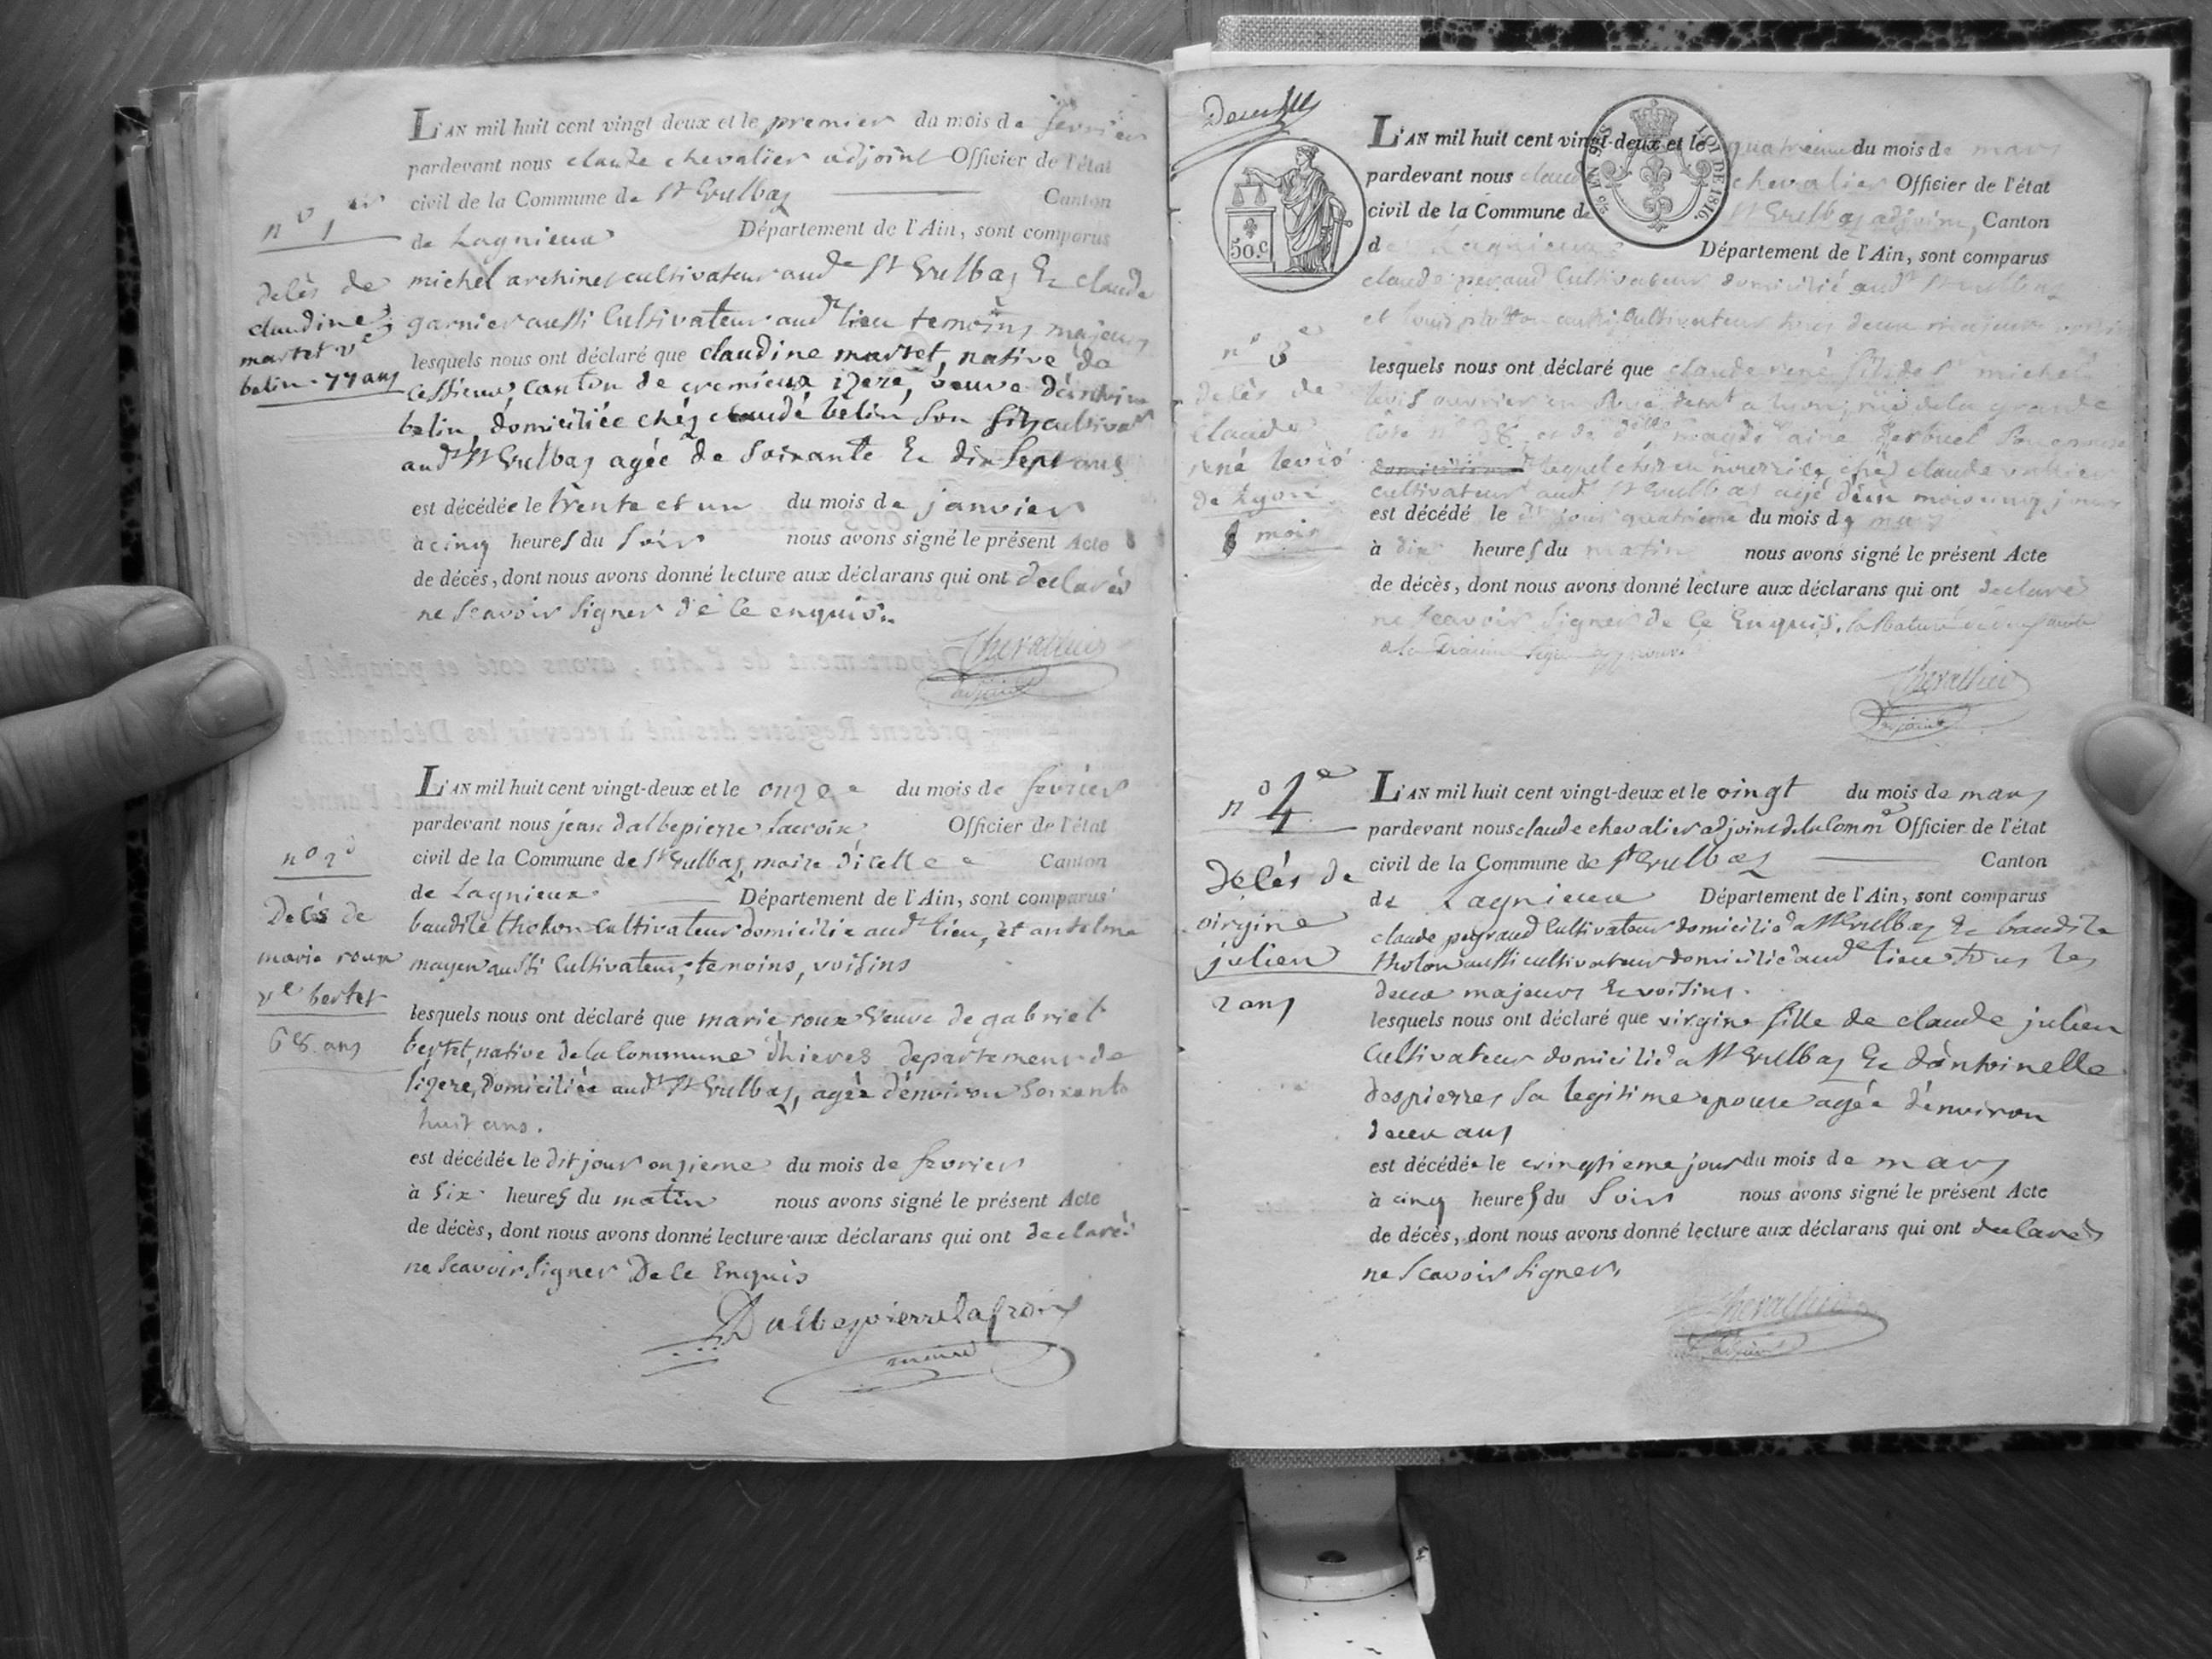 L'AN mil huit cent vingt deux et le premier du mois de fevrier
pardevant nous claude chevalier adjoint Officier de l'état
civil de la Commune de St Vulbas Canton
de Lagnieux Département de l'Ain, sont comparus
michel archiner cultivateur aude St Vulbas Et claude
garnier aussi Cultivateur audt lieu temoins majeurs
lesquels nous ont déclaré que claudine martet, native de
canton de cremieux izere, veuve
belin, domiciliée chéz claude belin son fils cultivatr
audt St Vulbas agée de soixante Et dix sept ans
est décédée le trente et un du mois de janvier
à cinq heures du soir nous avons signé le présent Acte
de décès, dont nous avons donné lecture aux déclarans qui ont declarés
ne scavoir signer de ce enquis.
Chevallier
adjoint
no 1er
decès de
claudine
martet ve
belin 77 ans
L'AN mil huit cent vingt-deux et le onze du mois de fevrier
pardevant nous jean dalbepierre lacroix Officier de l'état
civil de la Commune de St Vulbas, maire d'icelle Canton
de Lagnieux Département de l'Ain, sont comparus
baudile tholon Cultivateur domicilié audt lieu, et anselme
mayen aussi Cultivateur, temoins, voisins
lesquels nous ont déclaré que marie roux veuve de gabriel
bertet, native de la Commune d'hieres departement de
lizere, domiciliée audt St Vulbas, agée d'environ soixante
huit ans.
est décédée le dit jour onzieme du mois de fevrier
à six heures du matin nous avons signé le présent Acte
de décès, dont nous avons donné lecture aux déclarans qui ont declarés
ne scavoir signer De ce Enquis
Dalbepierre lacroix
maire
no 2e
Decés de
marie roux
ve bertet
68 ans
L'AN mil huit cent vingt-deux et le quatrieme du mois de mars
pardevant nous claude chevalier Officier de l'état
civil de la Commune de St Vulbas adjoint, Canton
de Lagnieux Département de l'Ain, sont comparus
claude peraud Cultivateur domicilié audt St Vulbas
et louis aussi Cultivateur tous deux majeurs
lesquels nous ont déclaré que claude rené fils de Sr michel
levis ouvrier en Soie demt a lyon, rüe de la grande
Côte no 38, et de dlle magdelaine son epouse
lequel etoit en nourrice chéz claude
cultivateur audt St Vulbas agé d'un mois cinq jours
est décédé le dt jour quatrieme du mois de mars
à dix heures du matin nous avons signé le présent Acte
de décès, dont nous avons donné lecture aux déclarans qui ont declarés
ne scavoir signer de ce Enquis.
Chevallier
adjoint
50 C.
LOI DE 1816.
no 3e
decès de
Claude
rené levis
de Lyon
1 mois
L'AN mil huit cent vingt-deux et le vingt du mois de mars
pardevant nous claude chevalier adjoint de la Comme Officier de l'état
civil de la Commune de St Vulbas Canton
de Lagnieux Département de l'Ain, sont comparus
claude peyraud Cultivateur domicilié a St Vulbas Et baudile
tholon aussi cultivateur domicilié aude lieu tous les
deux majeurs Et voisins.
lesquels nous ont déclaré que virgine fille de claude julien
Cultivateur domicilié a St Vulbas Et d'antoinelle
despierres sa legitime epouse agée d'environ
deux ans
est décédée le vingtieme jour du mois de mars
à cinq heures du soir nous avons signé le présent Acte
de décès, dont nous avons donné lecture aux déclarans qui ont declarés
ne scavoir signer.
Chevallier
adjoint
no 4e
Decés de
virgine
julien
2 ans